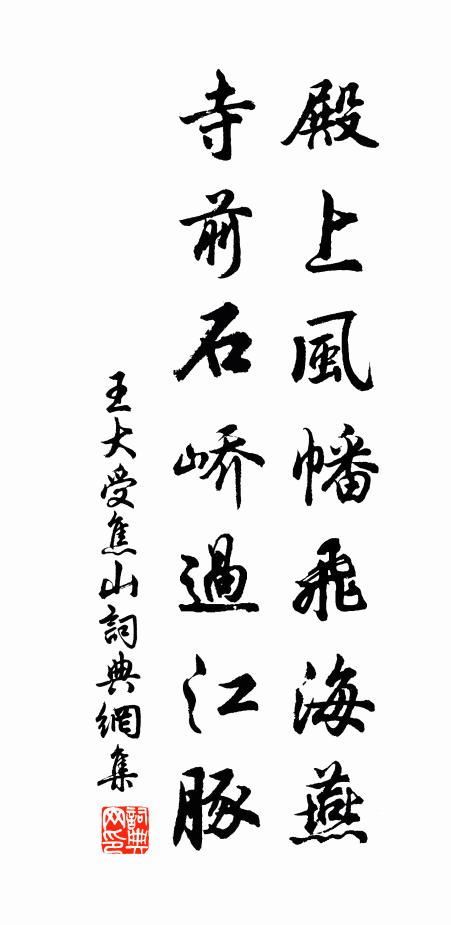 殿上風幡飛海燕
寺前石峤過江豚
王大受焦山詞典網集
詞典网印